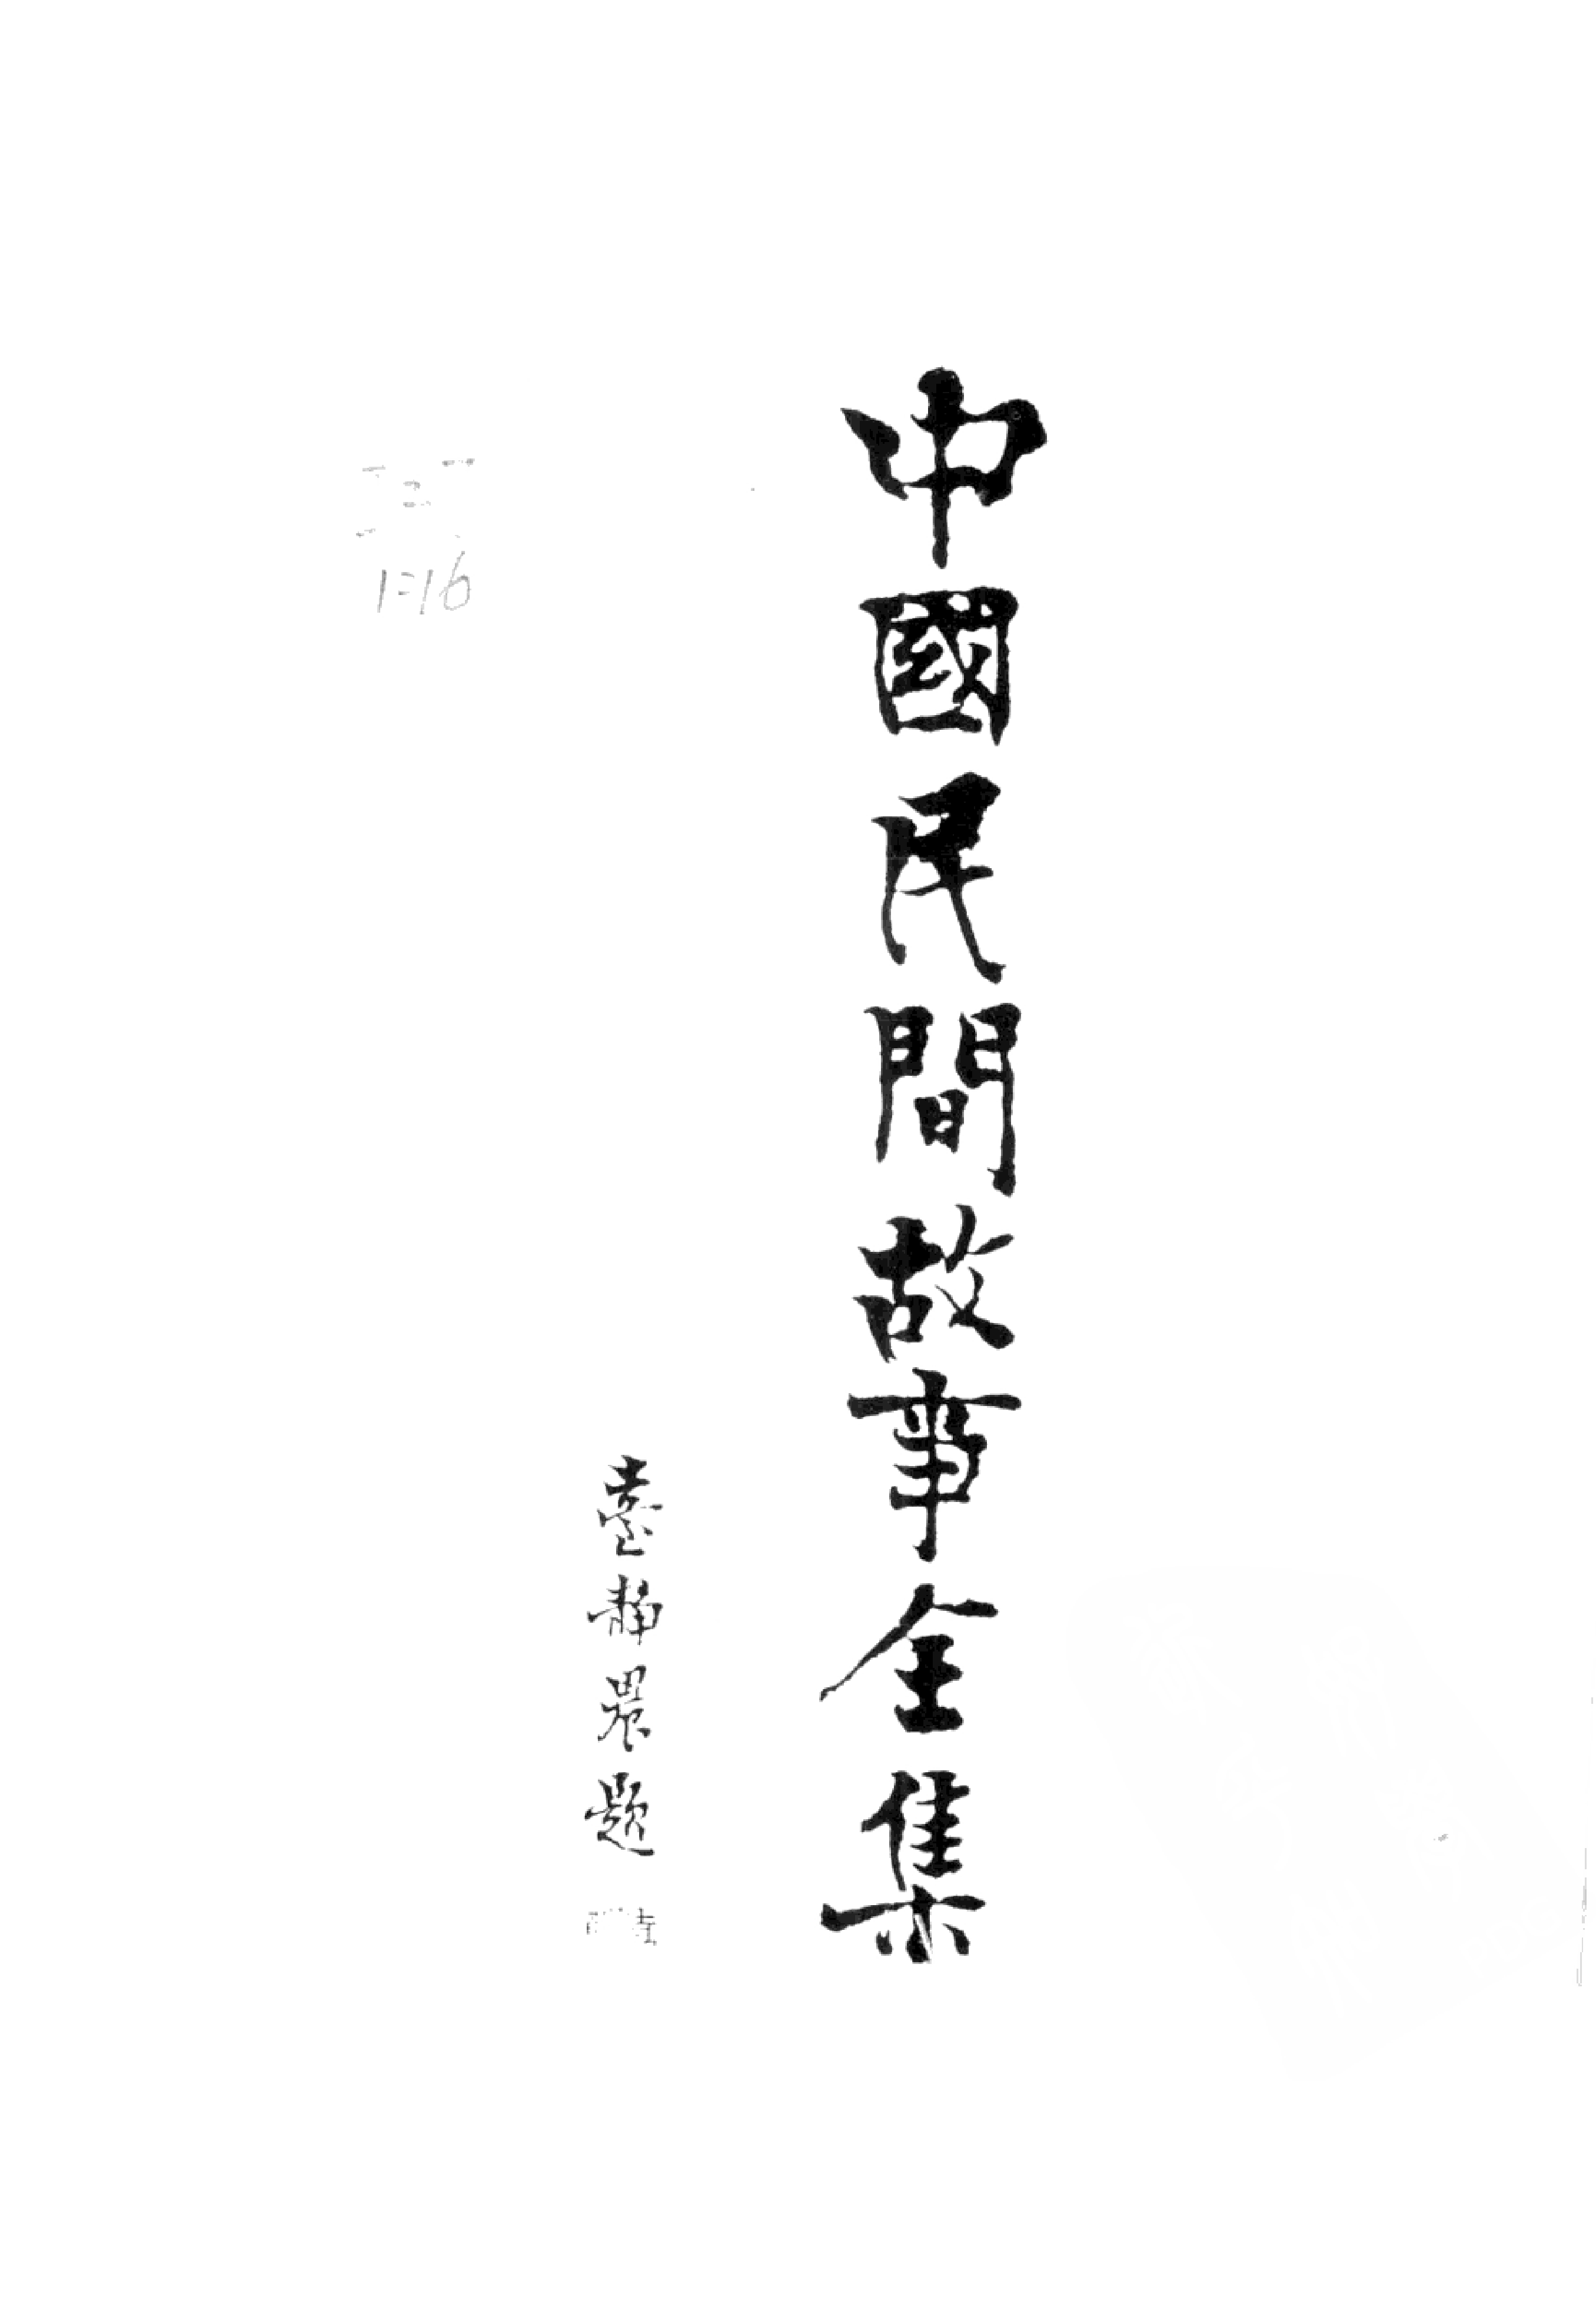 中國民間故事全集
臺靜農題
1=16